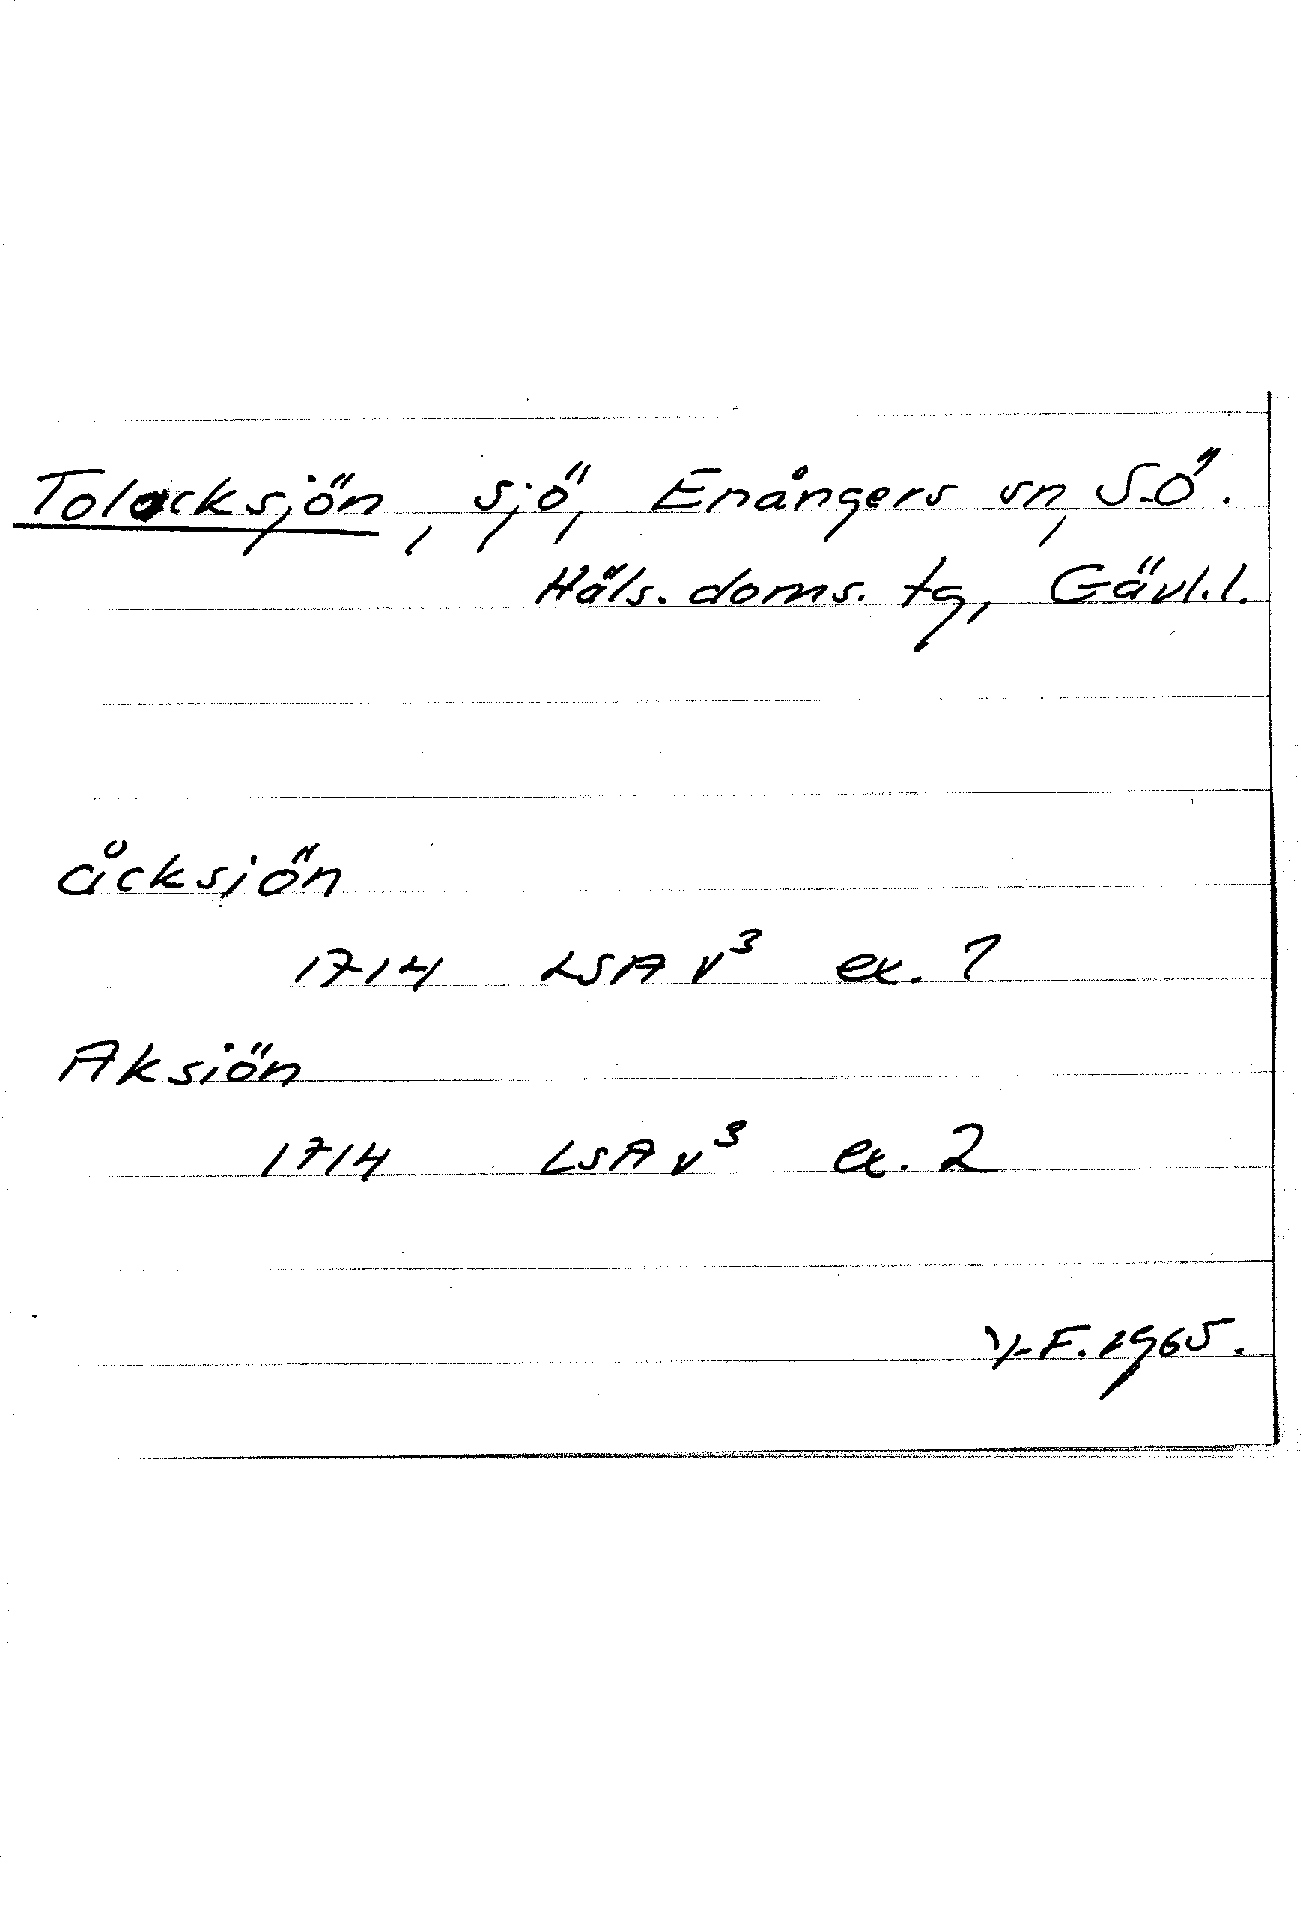 Tolacksjön, sjö, Enångers sn, S.Ö.
Häls. doms. tg, Gävl.l.
åcksjön
1714 LSA V³ ex. 1
Aksiön
1714 LSA V³ ex. 2
F. 1965.